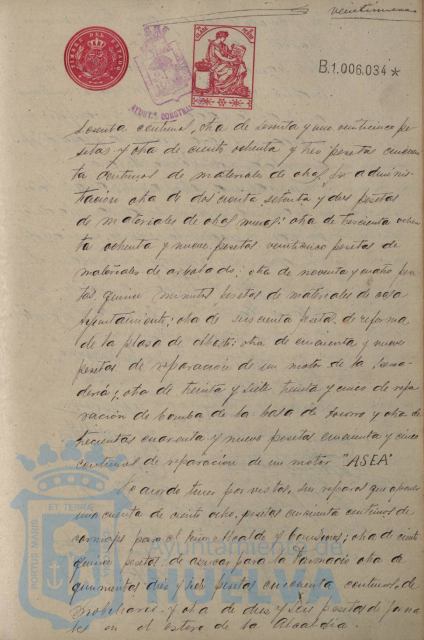 veintinueve
B.1.006.034 *
sesenta centimos, otra de setenta y una veinticinco pe
setas y otra de ciento ochenta y tres pesetas cincuen
ta centimos de materiales de obras por adminis
tración otra de doscientas setenta y dos pesetas
de materiales de obras munc.; otra de trescientas ochen
ta ochenta y nueve pesetas veinticinco pesetas de
materiales de arbolado; otra de noventa y cuatro pese
tas quince centimos pesetas de materiales de casa
Ayuntamiento; otra de seiscientas pesetas de reforma
de la plaza de abastos; otra de cincuenta y nueve
pesetas de reparación de un motor de la
; otra de treinta y siete treinta y cinco de repa
ración de bomba de la casa de socorro y otra de
trecientas cuarenta y nueve pesetas cincuenta y cinco
centimos de reparación de un motor "ASEA"
Se acordó tener por vistas, sin reparos que oponer
una cuenta de ciento ocho pesetas cincuenta centimos de
para el Alcalde y bomberos; otra de ciento
quince pesetas de azucar para la farmacia otra de
quinientas diez y seis pesetas cincuenta centimos de
y otra de diez y seis pesetas de jorna
les en el estero de la Alcaldia.
PORTUS MARIS ET TERRAE
Ayuntamiento de
HUELVA